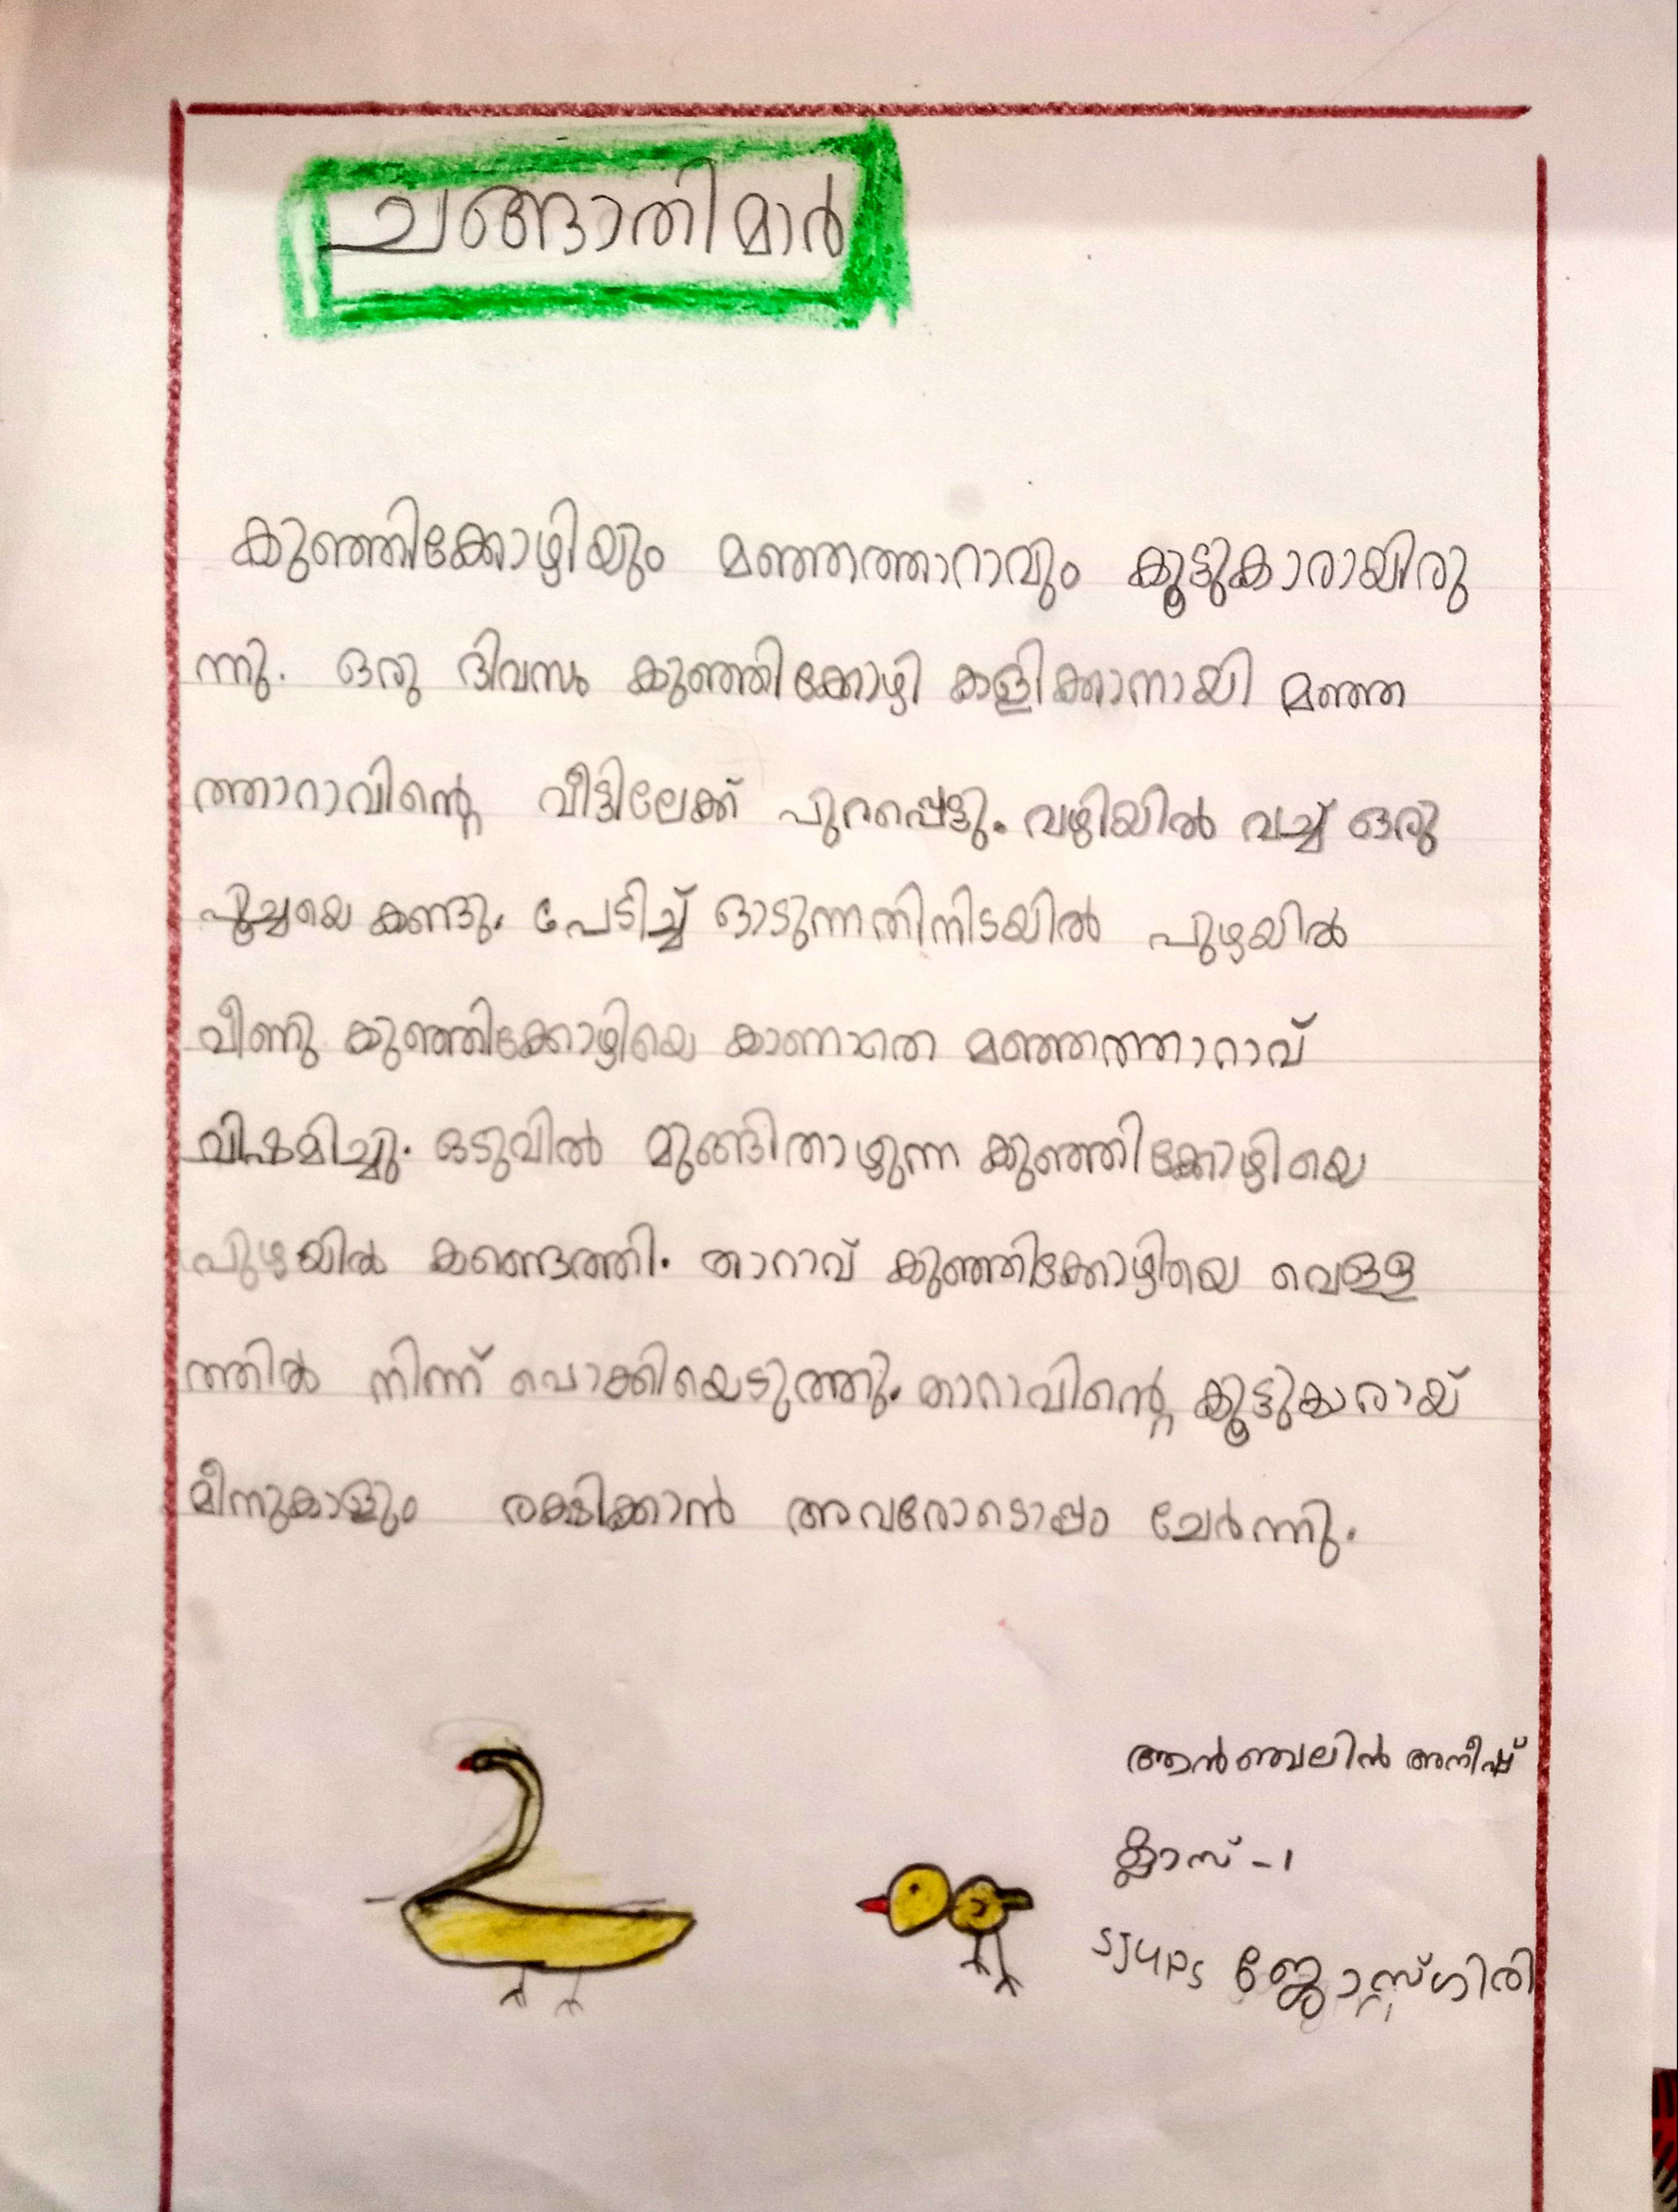 ചങ്ങാതിമാർ
കുഞ്ഞിക്കോഴിയും മഞ്ഞത്താറാവും കൂട്ടുകാരായിരു
ന്നു. ഒരു ദിവസം കുഞ്ഞിക്കോഴി കളിക്കാനായി മഞ്ഞ
ത്താറാവിന്റെ വീട്ടിലേക്ക് പുറപ്പെട്ടു. വഴിയിൽ വച്ച് ഒരു
പൂച്ചയെ കണ്ടു. പേടിച്ച് ഓടുന്നതിനിടയിൽ പുഴയിൽ
വീണു കുഞ്ഞിക്കോഴിയെ കാണാതെ മഞ്ഞത്താറാവ്
വിഷമിച്ചു. ഒടുവിൽ മുങ്ങിതാഴുന്ന കുഞ്ഞിക്കോഴിയെ
പുഴയിൽ കണ്ടെത്തി. താറാവ് കുഞ്ഞിക്കോഴിയെ വെള്ള
ത്തിൽ നിന്ന് പൊക്കിയെടുത്തു. താറാവിന്റെ കൂട്ടുകാരായ്
മീനുകാളും രക്ഷിക്കാൻ അവരോടൊപ്പം ചേർന്നു.
ആൻഞ്ചലിൻ അനീഷ്
ക്ലാസ് -1
SJUPS ജ്ജോസ്ഗിരി